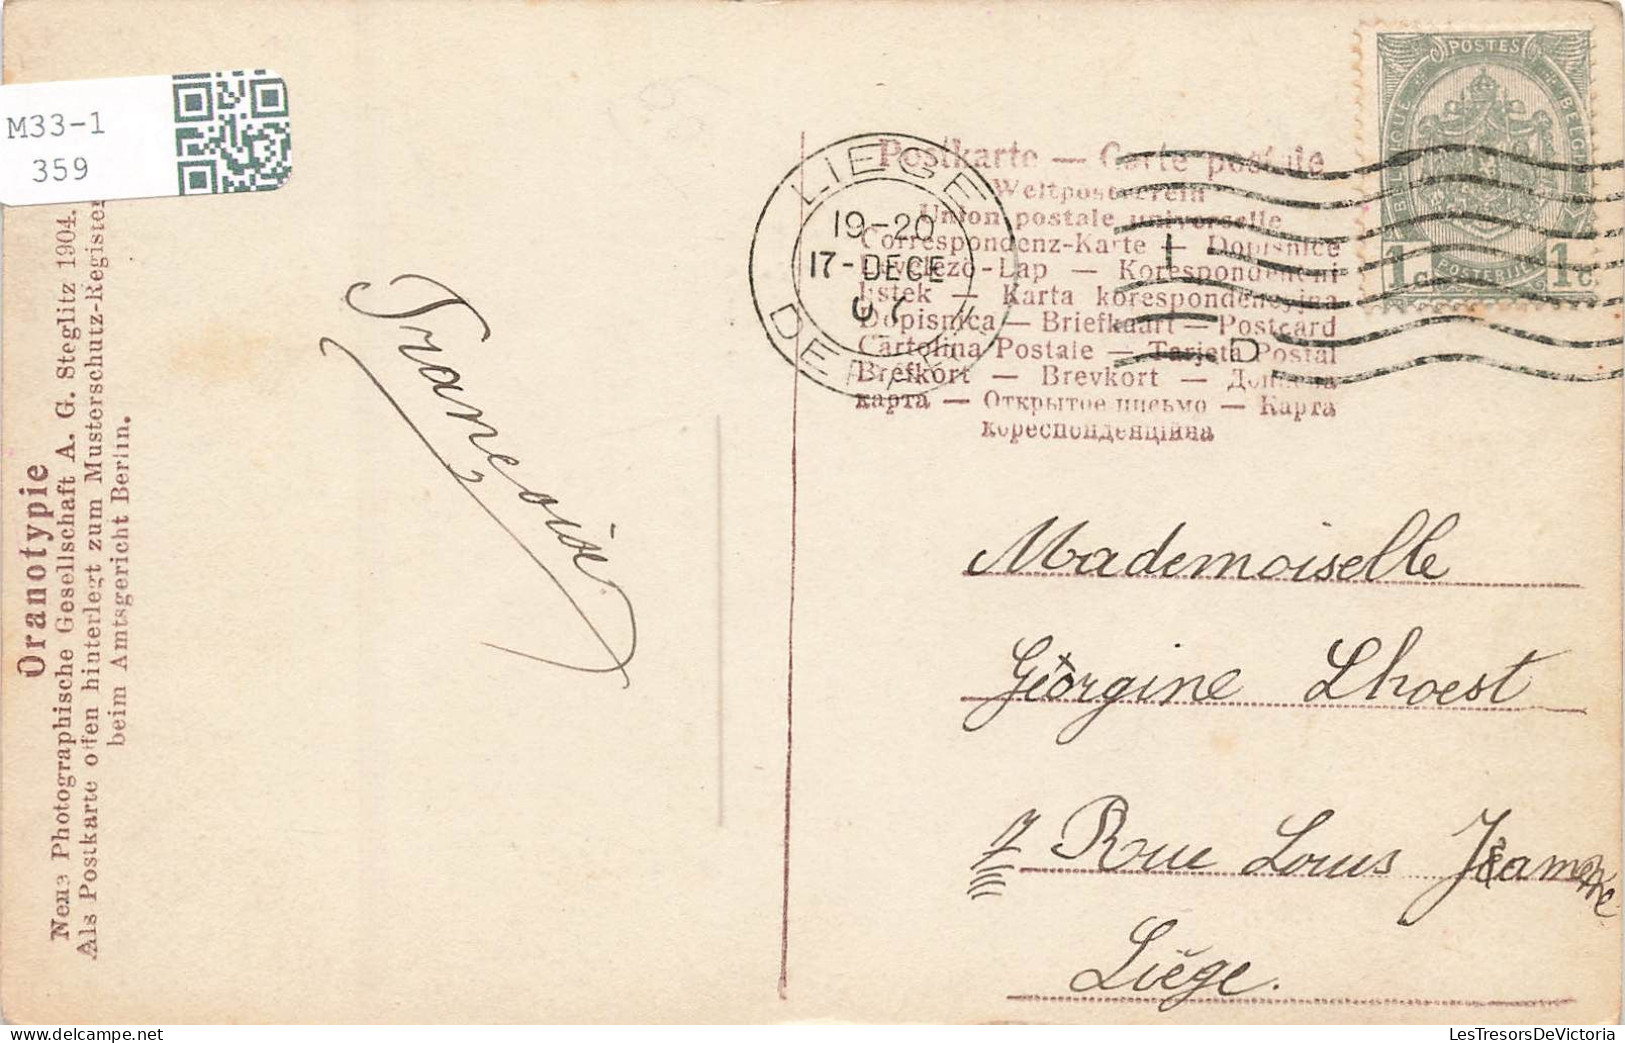 M33-1
359
Oranotypie
Neue Photographische Gesellschaft A. G. Steglitz 1904.
Als Postkarte offen hinterlegt zum Musterschutz-Register
beim Amtsgericht Berlin.
Françoise
LIEGE
19-20
17-DECE
07
DEPART
Postkarte — Carte postale
Weltpostverein
Union postale universelle
Correspondenz-Karte — Dopisnice
Levelező-Lap — Korespondenční
lístek — Karta korespondencyjna
Dopisnica — Briefkaart — Postcard
Cartolina Postale — Tarjeta Postal
Brefkort — Brevkort — Дописна
карта — Открытое письмо — Карта
кореспонденційна
POSTES
BELGIQUE
BELGIË
POSTERIJEN
1c
1c
L
D
Mademoiselle
Géorgine Lhoest
7 Rue Louis
Liége.
LesTresorsDeVictoria